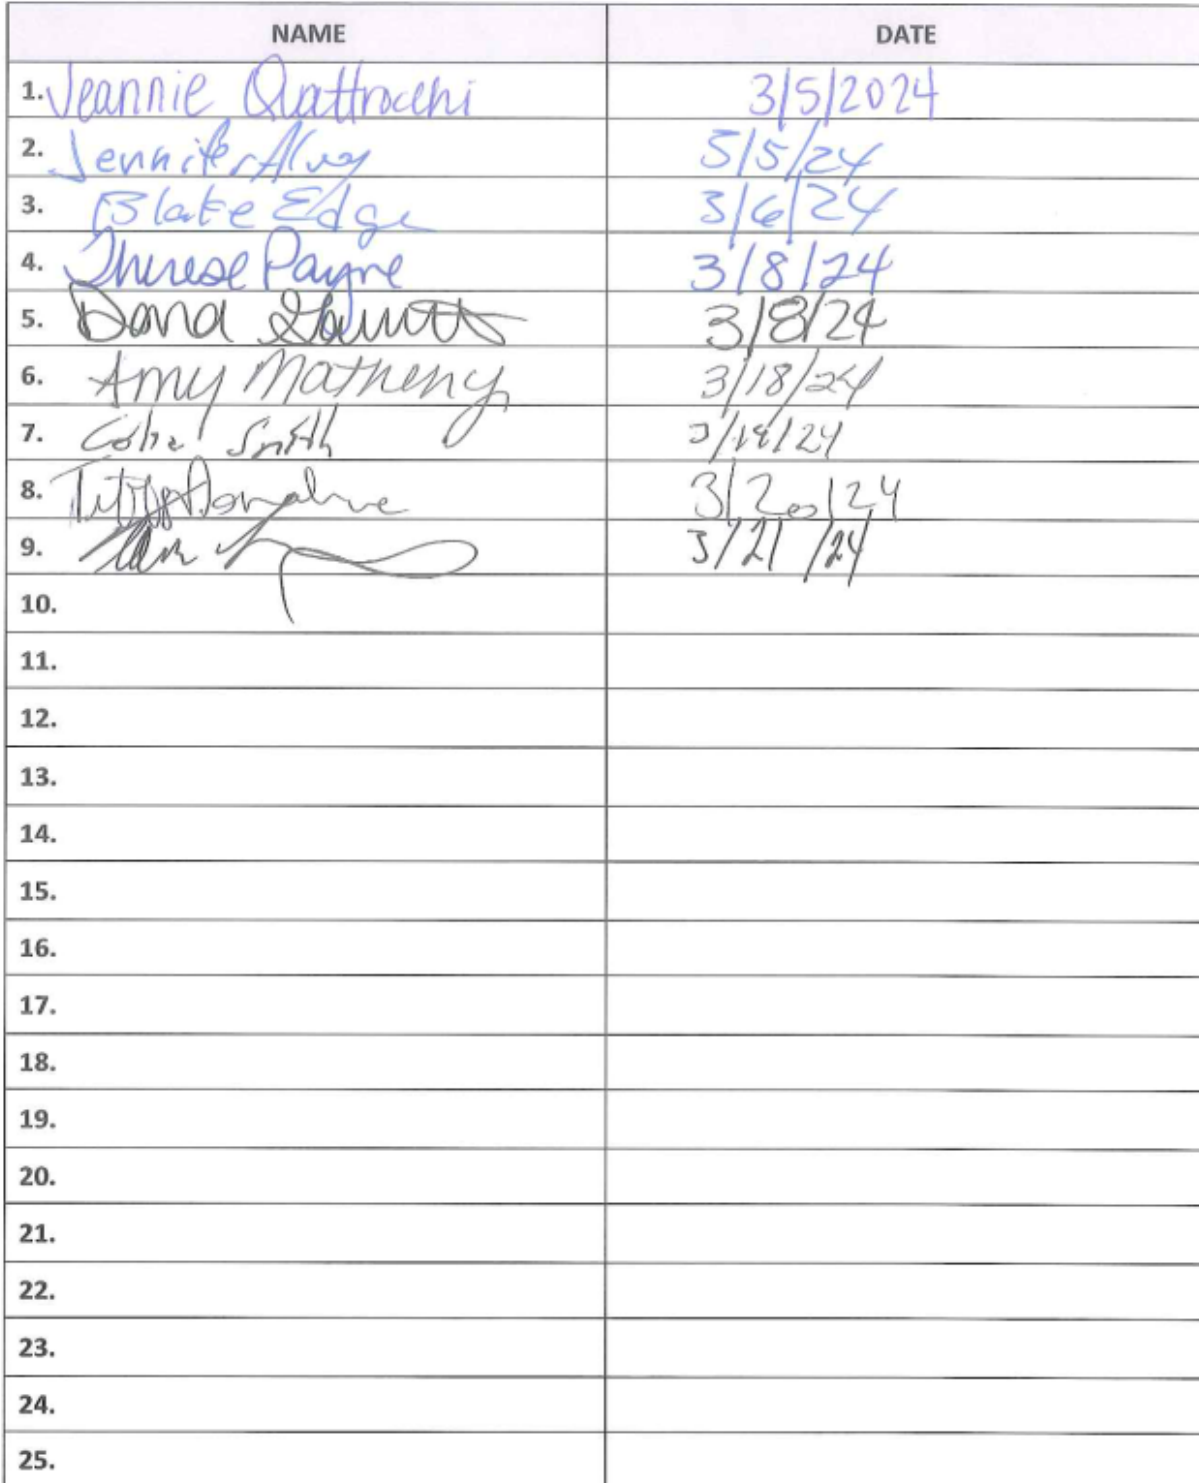 NAME DATE
1. Jeannie Quattrocchi 3/5/2024
2. Jennifer Alvey 3/5/24
3. Blake Edge 3/6/24
4. Therese Payne 3/8/24
5. Dana 3/8/24
6. Amy Matheny 3/18/24
7. Smith 3/18/24
8. Donahue 3/20/24
9. 3/21/24
10.
11.
12.
13.
14.
15.
16.
17.
18.
19.
20.
21.
22.
23.
24.
25.